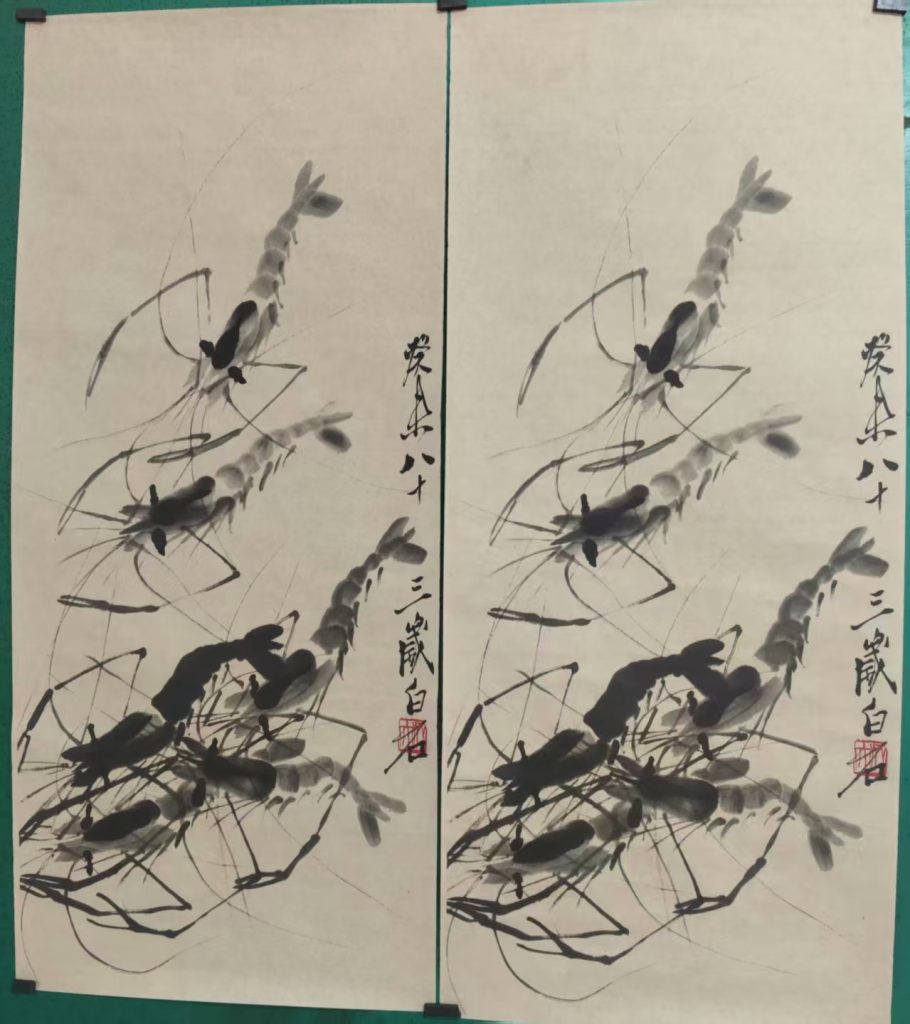 癸未八十三歲白石
癸未八十三歲白石